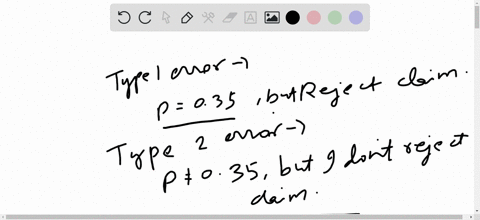 Type 1 error →
p = 0.35, but Reject claim.
Type 2 error →
p ≠ 0.35, but I don't reject
claim.